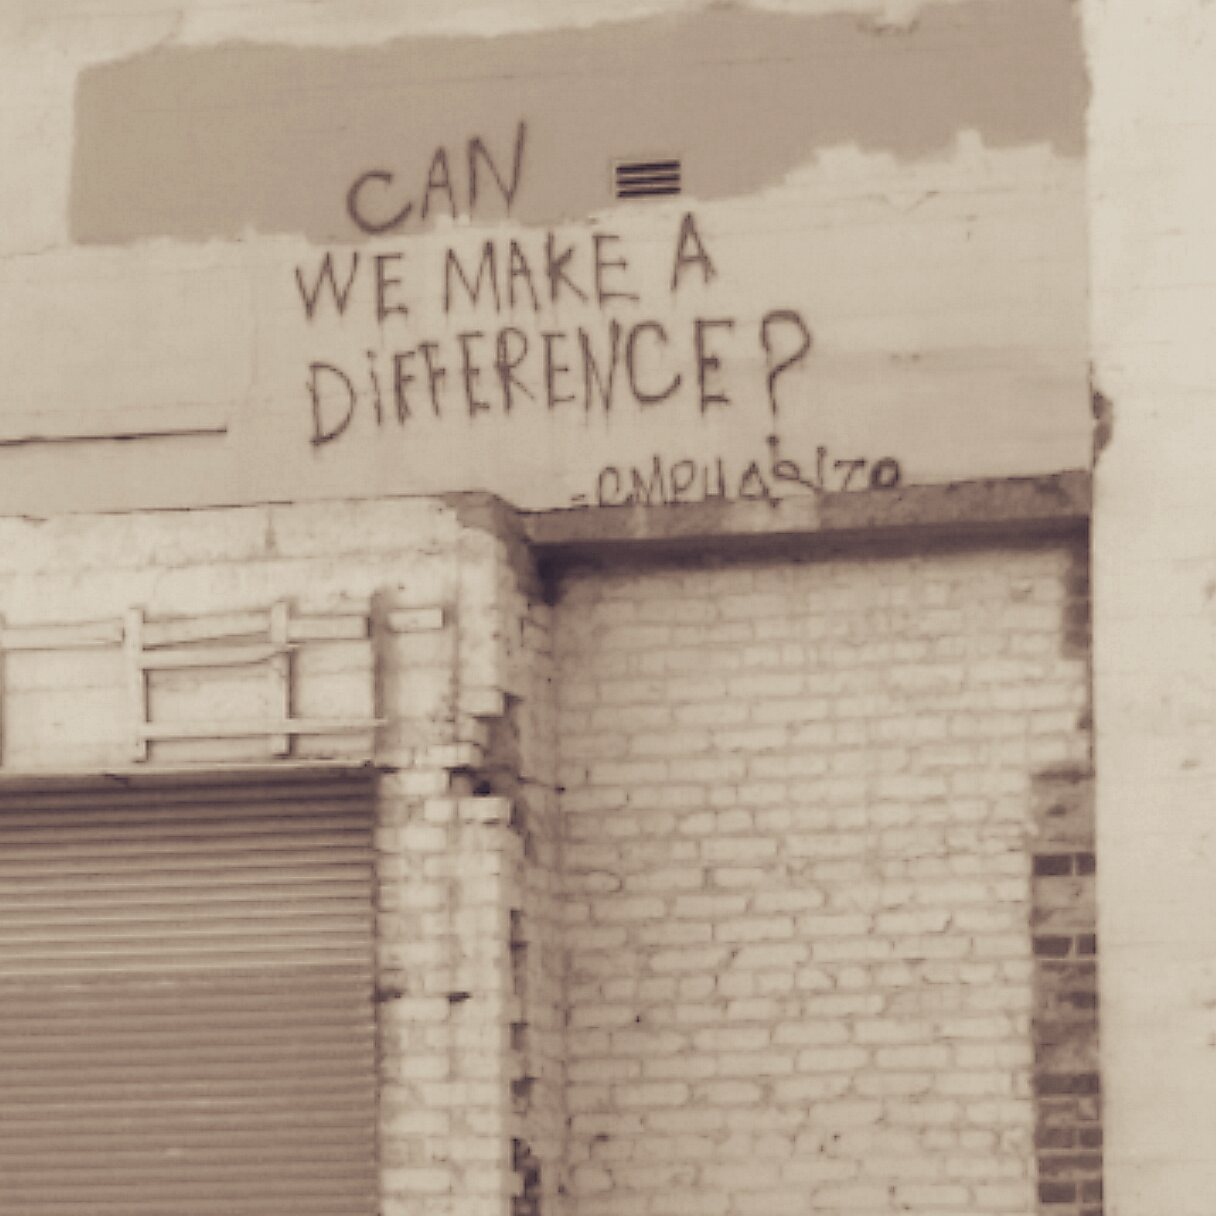 CAN
WE MAKE A
DiFFERENCE?